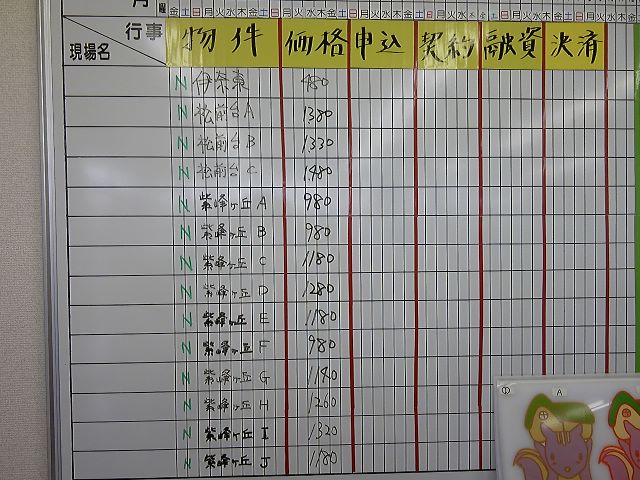 月 曜 金土日月火水木金土日月火水木金土日月火水木金土日月火水木金土日月火水木金土日月火水木金土日月火水木金土
行事 物件 価格 申込 契約 融資 決済
現場名
N 伊奈東 480
N 松前台A 1380
N 松前台B 1330
N 松前台C 1480
N 紫峰ヶ丘A 980
N 紫峰ヶ丘B 980
N 紫峰ヶ丘C 1180
N 紫峰ヶ丘D 1280
N 紫峰ヶ丘E 1180
N 紫峰ヶ丘F 980
N 紫峰ヶ丘G 1140
N 紫峰ヶ丘H 1260
N 紫峰ヶ丘I 1320
N 紫峰ヶ丘J 1180
① A